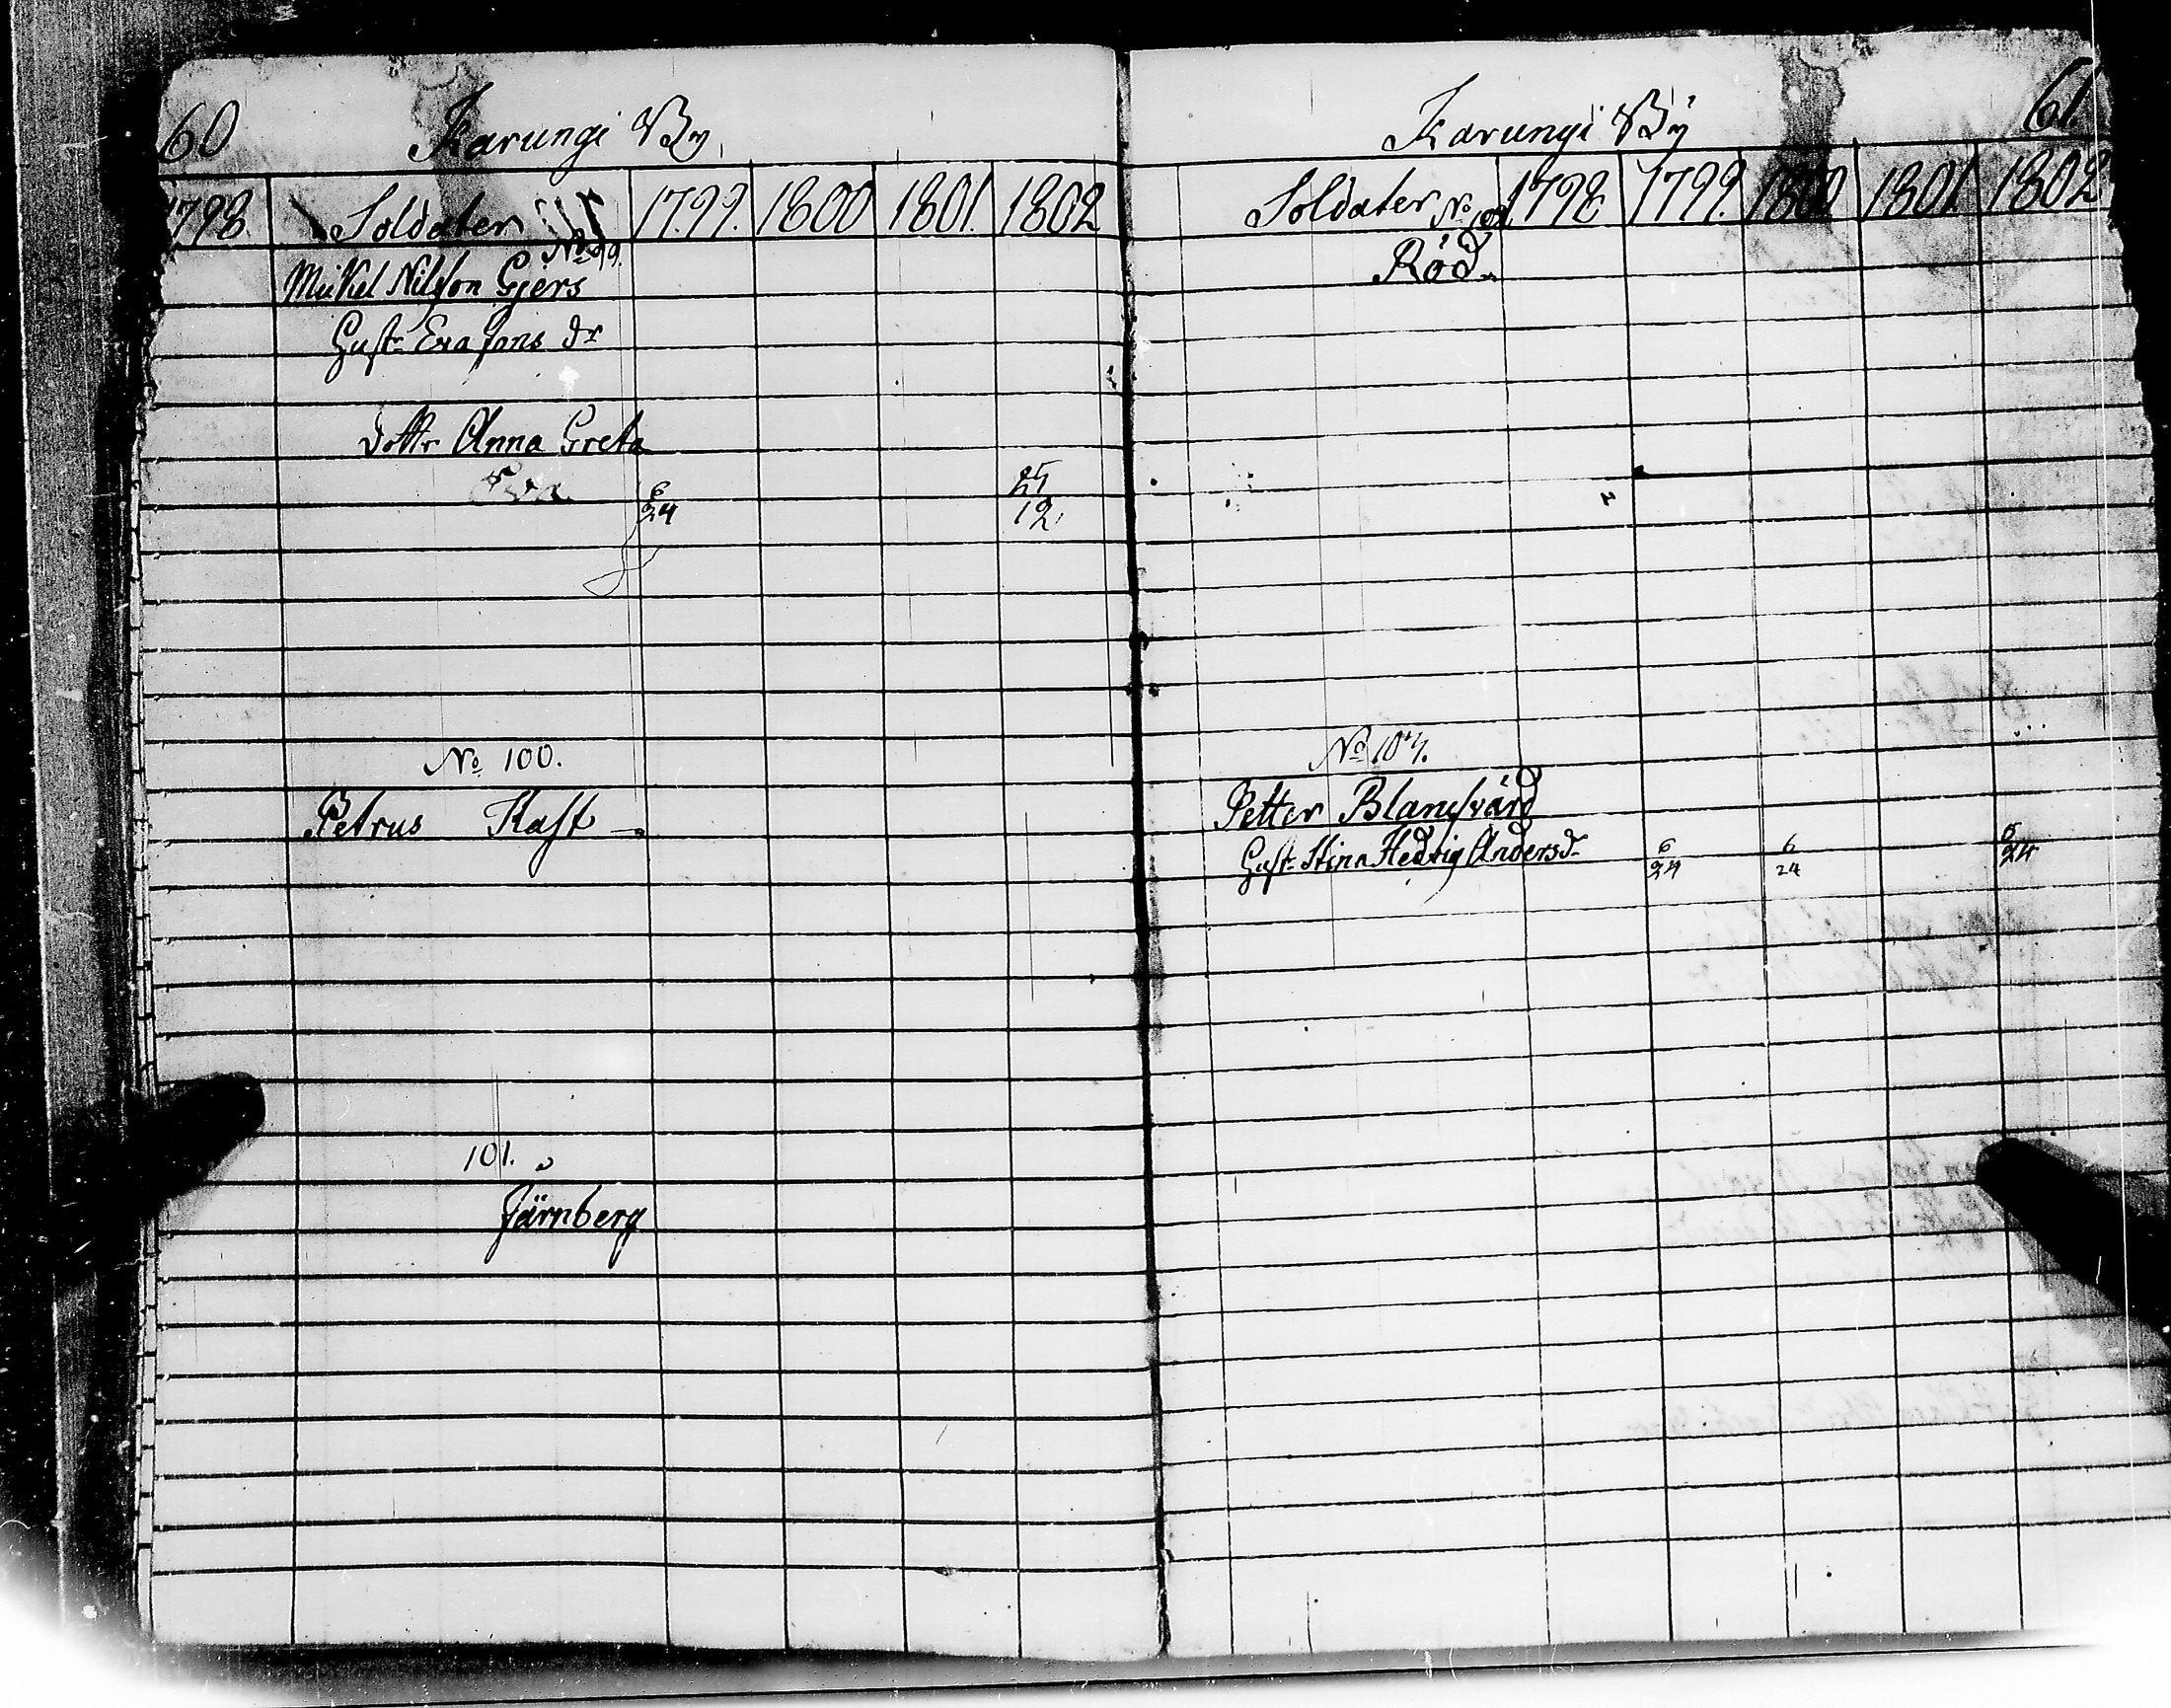 60 Karungi By
1798. Soldater 1799. 1800 1801. 1802
No 99.
Mickel Nilsson Gjers
Hust. Eva Jons dr
dottr Anna Greta
Eva 6/24 25/12
No 100.
Petrus Kast
101.
Järnberg
Karungi By 61.
Soldater No 1798 1799. 1800 1801. 1802
Röd.
No 103.
Petter Blancsvärd
Hust. Stina Hedvig Andersd. 6/24 6/24 5/24